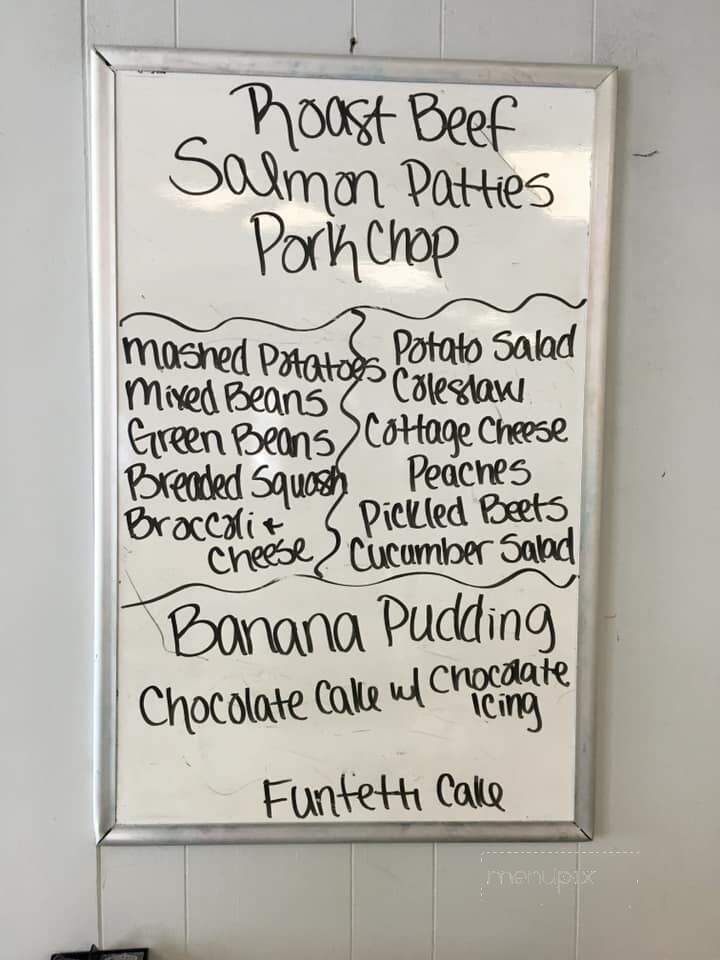 Roast Beef
Salmon Patties
Pork Chop
Mashed Potatoes
Mixed Beans
Green Beans
Breaded Squash
Broccoli &
Cheese
Potato Salad
Coleslaw
Cottage Cheese
Peaches
Pickled Beets
Cucumber Salad
Banana Pudding
Chocolate Cake w/ Chocolate
Icing
Funfetti Cake
menupix